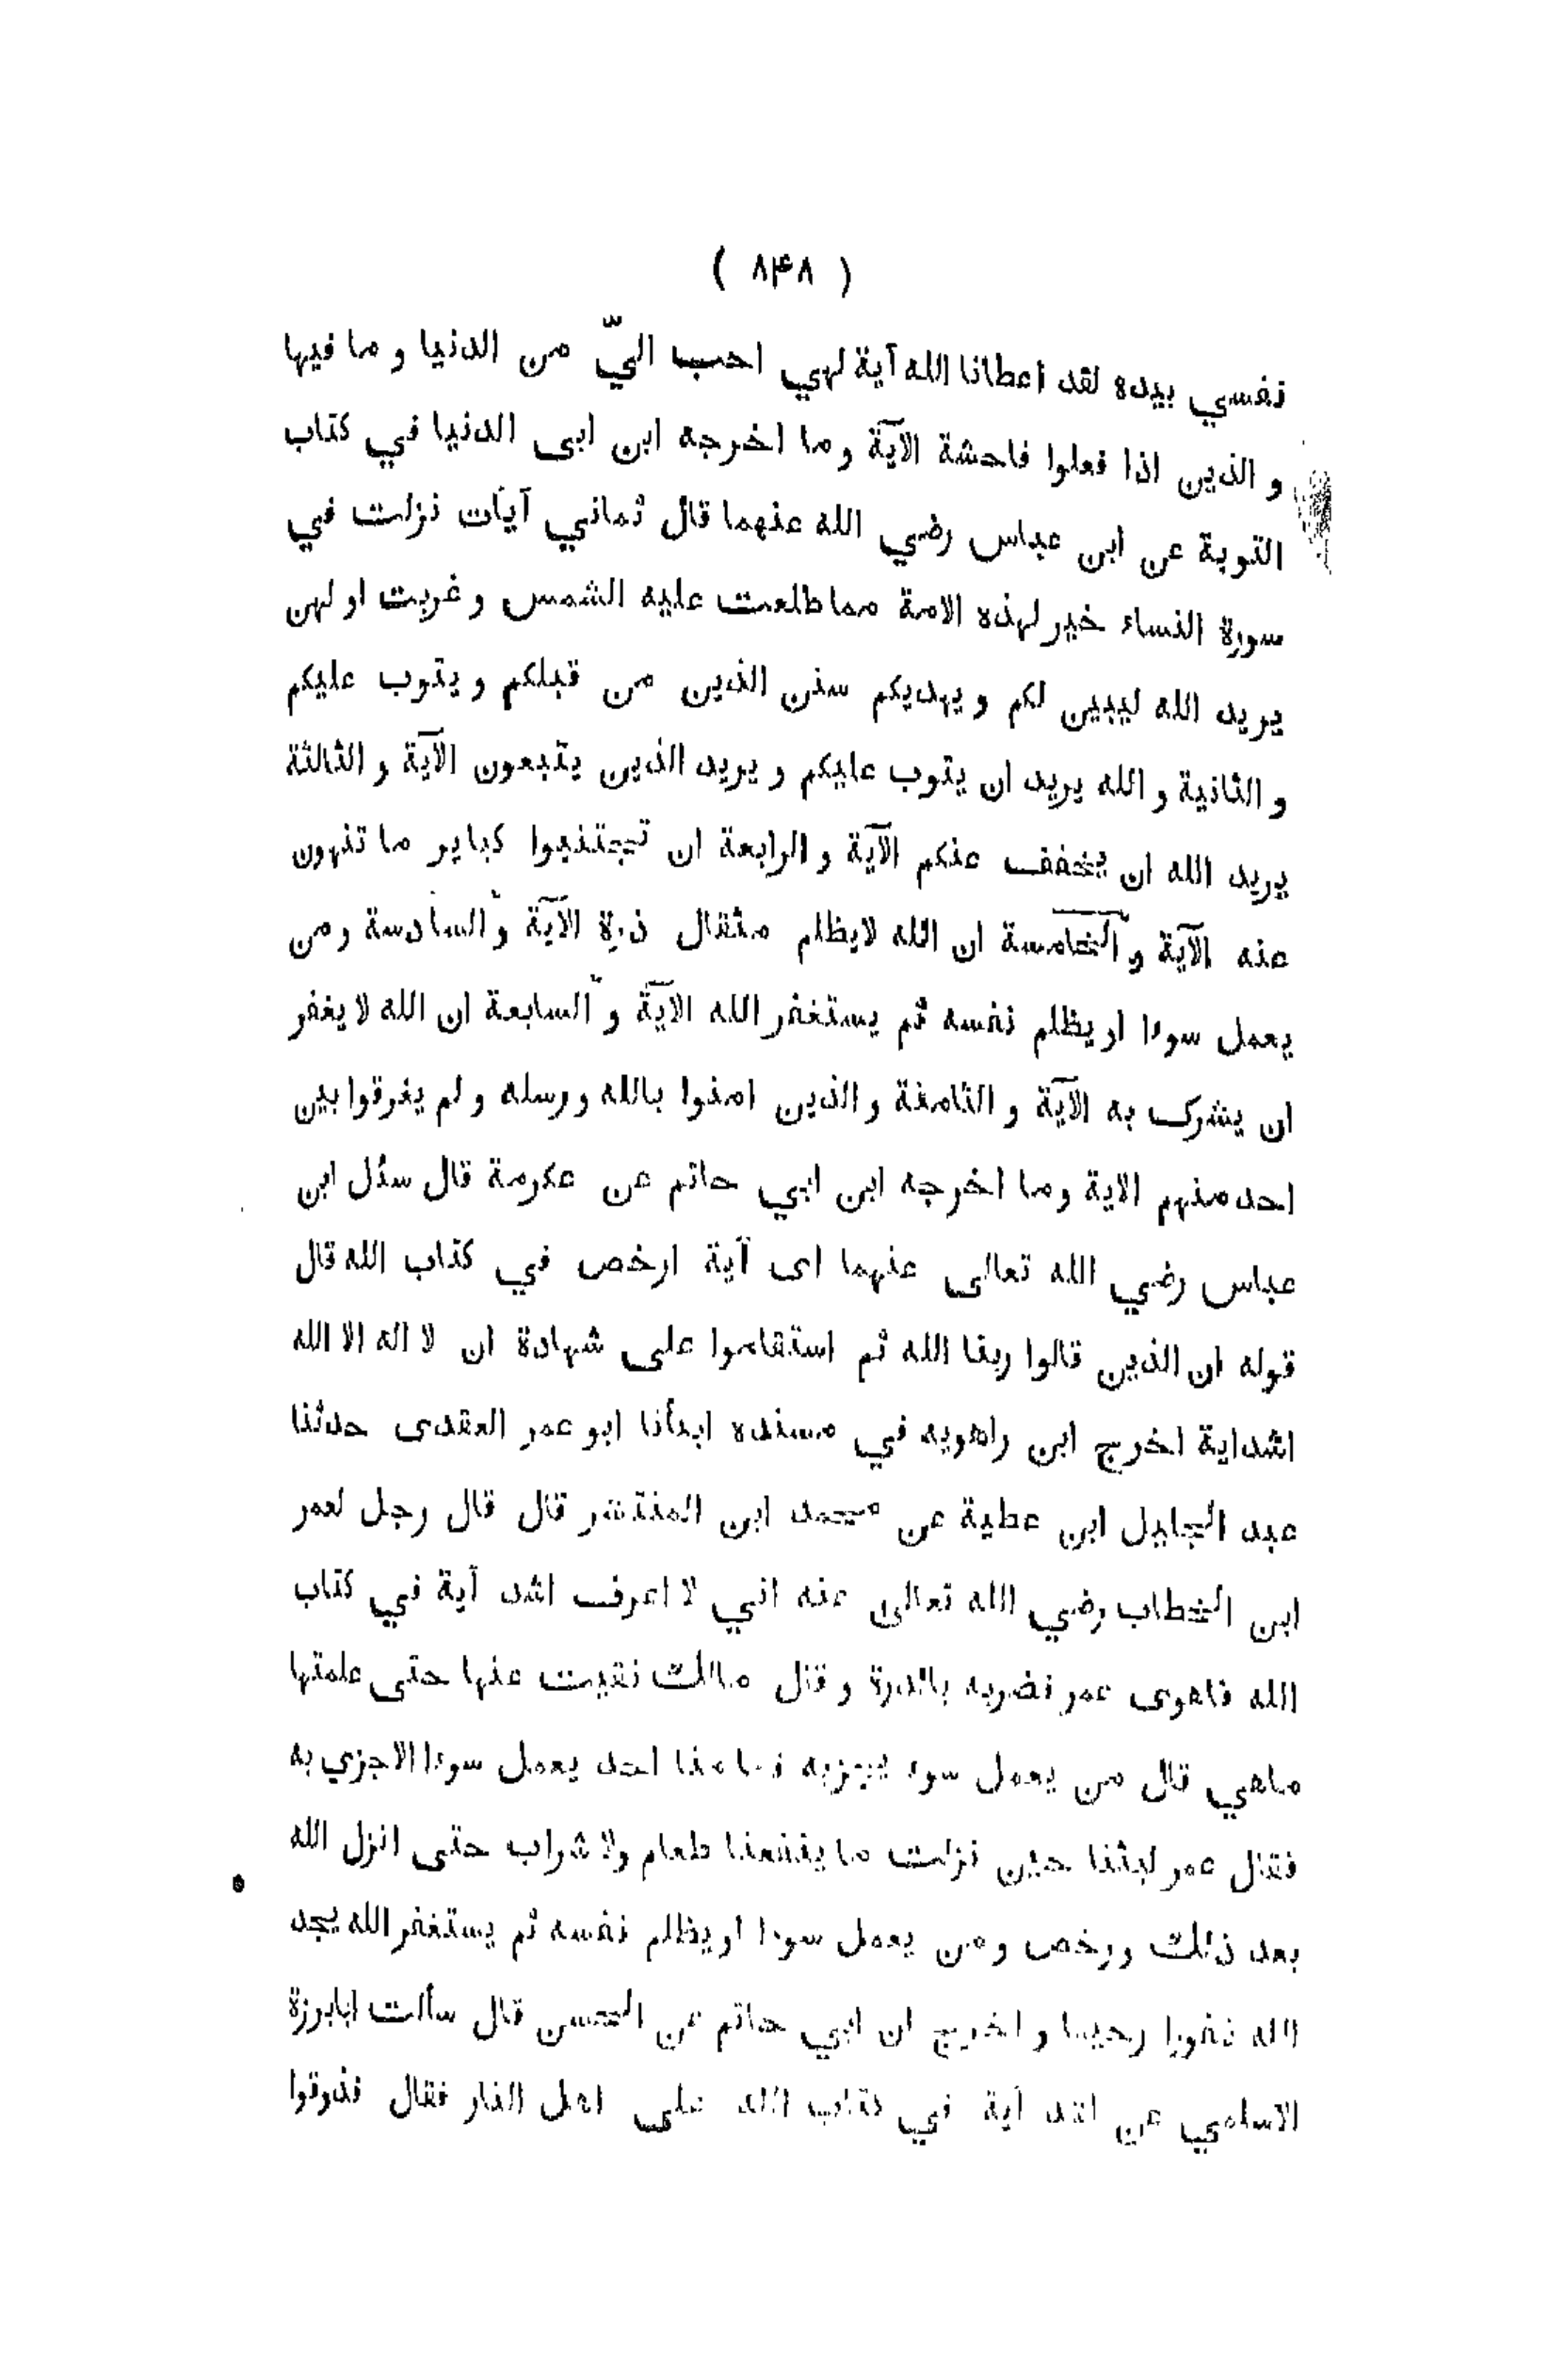 ( ۸۴۸ )
نفسي بيده لقد اعطانا الله آية لهي احب اليّ من الدنيا و ما فيها
و الذين اذا فعلوا فاحشة الآية وما اخرجه ابن ابى الدنيا في كتاب
التوبة عن ابن عباس رضي الله عنهما قال ثماني آيات نزلت في
سورة النساء خير لهذه الامة مما طلعت عليه الشمس و غربت اولهن
يريد الله ليبين لكم و يهديكم سنن الذين من قبلكم و يتوب عليكم
و الثانية و الله يريد ان يتوب عليكم و يريد الذين يتبعون الآية و الثالثة
يريد الله ان يخفف عنكم الآية و الرابعة ان تجتنبوا كباير ما تنهون
عنه الآية و الخامسة ان الله لايظلم مثقال ذرة الآية و السادسة ومن
يعمل سوءا او يظلم نفسه ثم يستغفر الله الآية و السابعة ان الله لا يغفر
ان يشرك به الآية و الثامنة و الذين امنوا بالله و رسله و لم يفرقوا بين
احد منهم الاية وما اخرجه ابن ابي حاتم عن عكرمة قال سئل ابن
عباس رضي الله تعالى عنهما اى آية ارخص في كتاب الله قال
قوله ان الذين قالوا ربنا الله ثم استقاموا على شهادة ان لا اله الا الله
اشداية اخرج ابن راهويه في مسنده ابنأنا ابو عمر العقدى حدثنا
عبد الجليل ابن عطية عن محمد ابن المنتشر قال قال رجل لعمر
ابن الخطاب رضي الله تعالى عنه اني لا اعرف اشد آية في كتاب
الله فاهوى عمر فضربه بالدرة و قال مالك نقيت عنها حتى علمتها
ماهي قال من يعمل سوء يجزبه فما منا احد يعمل سوءا الاجزي به
فقال عمر لبثنا حين نزلت ما ينفعنا طعام ولا شراب حتى انزل الله
بعد ذلك ورخص ومن يعمل سوءا او يظلم نفسه ثم يستغفر الله يجد
الله غفورا رحيما و اخرج ابن ابي حاتم عن الحسن قال سألت ابابرزة
الاسلمي عن اشد آية في كتاب الله على اهل النار فقال فذوقوا